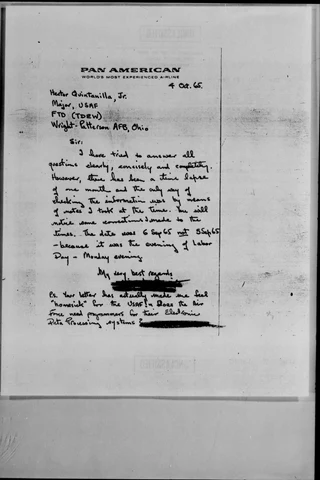 PAN AMERICAN
WORLD'S MOST EXPERIENCED AIRLINE
4 Oct. 65
Hector Quintanilla, Jr.
Major, USAF
FTD (TDEW)
Wright-Patterson AFB, Ohio
Sir:
I have tried to answer all
questions clearly, concisely and completely.
However, there has been a time lapse
of one month and the only way of
checking the information was by means
of notes I took at the time. You will
notice some corrections I made to the
times. The date was 6 Sep 65 not 5 Sep 65
- because it was the evening of Labor
Day - Monday evening
My very best regards
Ps. Your letter has actually made me feel
"homesick" for the USAF! Does the Air
Force need programmers for their Electronic
Data Processing systems?